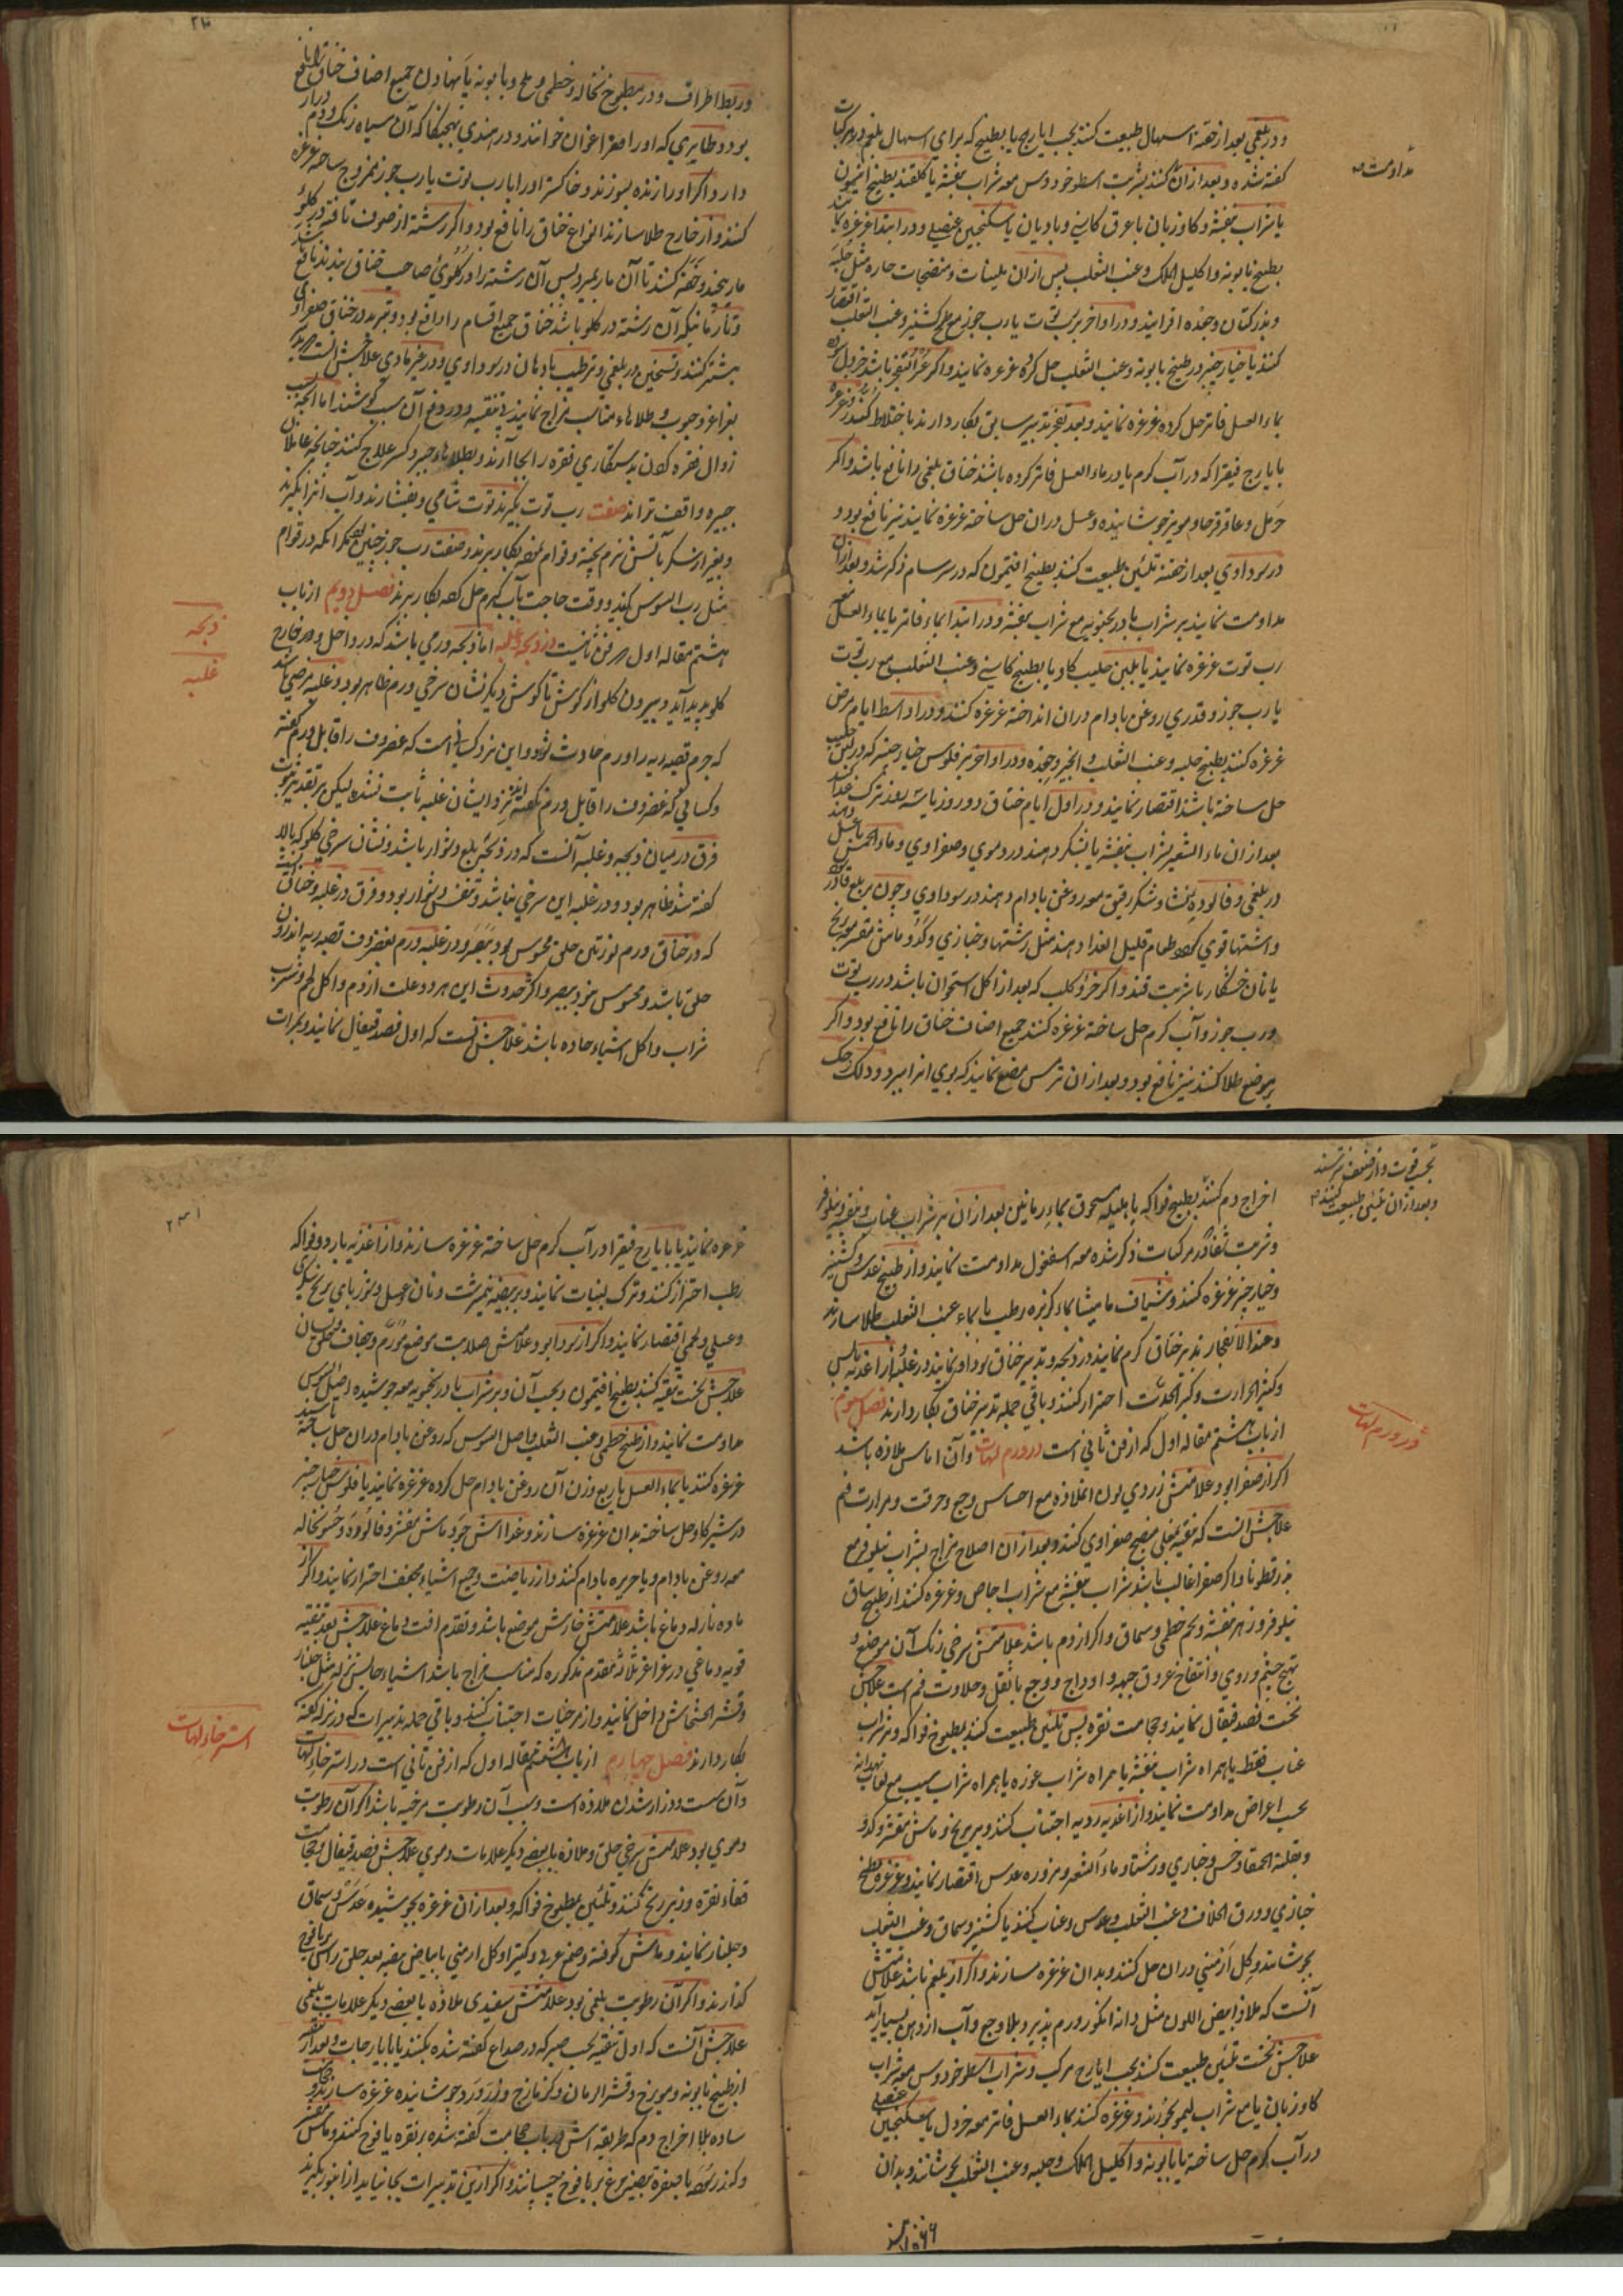 مداومت
ودر بلغمي بعد از حقنه اسهال طبيعت كنند بحب ايارج يا بطبيخ كه براي اسهال بلغم در مركبات
كفته شده و بعد از ان كنند بشربت اسطوخودوس مع شراب بنفشه يا كلقند بطبيخ انيسون
يا شراب بنفشه و كاوزبان با عرق كاسني و باديان يا سكنجبين عنصلي و در ابتدا غرغره نمايند
بطبيخ بابونه و اكليل الملك و عنب الثعلب پس از ان بلينات و منضجات حاره مثل حلبه
و بذر كتان و جعده افزايند و در اواخر برب توت يا رب جوز مع طبيخ كشنيز و عنب الثعلب اقتصار
كنند يا خيار چنبر در طبيخ بابونه و عنب الثعلب حل كرده غرغره نمايند و اكر باشد خردل
بماء العسل فاتر حل كرده غرغره نمايند و بعد تدبير سابق بكار دارند
با يارج فيقرا كه در آب كرم يا در ماء العسل فاتر كرده باشند خناق بلغمي را نافع باشد و اكر
حرمل و عاقرقرحا و مويز جوشانيده و عسل دران حل ساخته غرغره نمايند نيز نافع بود و
در سوداوي بعد از حقنه تليين طبيعت كنند بطبيخ افتيمون كه در سرسام ذكر شد و بعد از ان
مداومت نمايند بر شراب بادرنجبويه مع شراب بنفشه و در ابتدا بماء فاتر يا بماء العسل مع
رب توت غرغره نمايند يا بلبن حليب كاو يا بطبيخ كاسني و عنب الثعلب مع رب توت
يا رب جوز و قدري روغن بادام دران انداخته غرغره كنند و در اواسط ايام مرض
غرغره كنند بطبيخ حلبه و عنب الثعلب و انجير و جعده و در اواخر بر فلوس خيارچنبر كه در لبن حليب
حل ساخته باشند اقتصار نمايند و در اول ايام خناق دو روز يا سه روز ترك غذا كنند
بعد از ان ماء الشعير بشراب بنفشه يا بشكر دهند در دموي و صفراوي و ماء الحمص با عسل دهند
در بلغمي و فالوده نشا و شكر رقيق مع روغن بادام دهند در سوداوي و چون بر بلع قادر
و اشتها قوي كردد طعام قليل الغذا دهند مثل رشتها و خبازي و كدو و ماش مقشر مع برنج
يا نان خشكار با شربت قند و اكر خرؤ كلب كه بعد از اكل استخوان باشد در رب توت
و رب جوز و آب كرم حل ساخته غرغره كنند جميع اصناف خناق را نافع بود و اكر
بر موضع طلا كنند نيز نافع بود و بعد از ان ترمس مضغ نمايند كه بوي انرا ببرد و دلك
و ربط اطراف و در مطبوخ نخاله و خطمي و ملح و بابونه پا نهادن جميع اصناف خناق را نافع
بود و طايري كه اورا خوانند و در هندي كه آن سياه رنك و دم دراز
دارد اكر اورا زنده بسوزند و خاكستر اورا با رب توت يا رب جوز ممزوج ساخته غرغره
كنند و از خارج طلا سازند انواع خناق را نافع بود و اكر رشته از صوف تافته در كلو
مار پيچند و خفه كنند تا آن مار بميرد پس آن رشته را در كلوي صاحب خناق بندند نافع
و تا زمانيكه آن رشته در كلو باشد خناق جميع اقسام را دافع بود و تبريد در خناق صفراوي
بيشتر كنند و تسخين در بلغمي و ترطيب بادهان در سوداوي و در غير مادي علاجش
بغراغر و حبوب و طلاهاء مناسب مزاج نمايند بي تنقيه و در دفع آن سبب كوشند اما آنچه بسبب
زوال فقره كردن بدستكاري فقره را بجا آرند و بطلاهاء جبر و كسر علاج كنند چنانچه عاملان
جبيره واقف تواند صفت رب توت بكيرند توت شامي و بفشارند و آب انرا بكيرند
و بغير از شكر بآتش نرم پخته و قوام بكار برند و صفت رب جوز چنين مكر آنكه در قوام
مثل رب السوس كنند و وقت حاجت بآب كرم حل كرده بكار برند فصل دويم از باب
هشتم مقاله اول از فن ثانيست در ذبحه و غلبه اما ذبحه ورمي باشد كه در داخل و در خارج
كلو پديد آيد و بيرون كلو از كوش تا كوش ديكر نشان سرخي ورم ظاهر بود و غلبه مرضي باشد
كه جرم قصبه ريه را ورم حادث شود و اين نزد كساني است كه غضروف را قابل ورم كفته
و كساني كه غضروف را قابل ورم نكفته اند نزد ايشان غلبه ثابت نشده ليكن بر تقدير ثبوت
فرق درميان ذبحه و غلبه آنست كه در ذبحه بلع دشوار باشد و نشان سرخي كلو كه بالا
كفته شد ظاهر بود و در غلبه اين سرخي نباشد و تنفس دشوار بود و فرق در غلبه و خناق
كه در خناق ورم لوزتين حلق محسوس بود ببصر و در غلبه ورم بغضروف قصبه ريه اندرون
حلق باشد و محسوس نبود ببصر و اكثر حدوث اين هر دو علت از دم و اكل لحم و شرب
شراب و اكل اشياء حاده باشد علاجش آنست كه اول فصد قيفال نمايند و بمرات
ذبحه
غلبه
بحسب قوت و از ضعف نترسند
و بعد از ان تليين طبيعت كنند
اخراج دم كنند بطبيخ فواكه يا هليله مسحوق بماء رمانين بعد از ان بر شراب عناب و بنفشه و نيلوفر
و شربت كه در مركبات ذكر شده مع اسفغول مداومت نمايند و از طبيخ عدس و كشنيز
و خيارچنبر غرغره كنند و شياف ماميثا بماء كزبره رطب يا بماء عنب الثعلب طلا سازند
و عند الانفجار تدبير خناق كرم نمايند در ذبحه و تدبير خناق سوداوي نمايند در غلبه و از اغذيه يابس
و كثير الحرارت و كثير الحدت احتراز كنند و باقي جمله تدبير خناق بكار دارند فصل سيوم
از باب هشتم مقاله اول كه از فن ثاني است در ورم لهات وآن اماس ملازه باشد
اكر از صفرا بود علامتش زردي لون ملازه مع احساس وجع و حرقت و مرارت فم
علاجش آنست كه تنقيه بمغلي منضج صفراوي كنند و بعد از ان اصلاح مزاج بشراب نيلوفر مع
بذر قطونا و اكر صفرا غالب باشد شراب بنفشه مع شراب اجاص و غرغره كنند از طبيخ ساق
نيلوفر و زهر بنفشه و تخم خطمي و سماق و اكر از دم باشد علامتش سرخي رنك آن موضع و
تهبج چشم و روي و انتفاخ عروق جبهه و اوداج و وجع با ثقل و حلاوت فم است علاجش
نخست فصد قيفال نمايند و حجامت نقره پس تليين طبيعت كنند بمطبوخ فواكه و بر شراب
عناب فقط يا همراه شراب بنفشه يا همراه شراب غوره يا همراه شراب سيب مع لعاب بهدانه
بحسب اعراض مداومت نمايند و از اغذيه رديه اجتناب كنند و بر برنج و ماش مقشر و كدو
و بقلة الحمقا و خس و خبازي و رشتا و ماء الشعير و مزوره عدس اقتصار نمايند و غرغره بطبيخ
خبازي و ورق الخلاف و عنب الثعلب و عدس و عناب كنند يا كشنيز و سماق و عنب الثعلب
بجوشانند و كل ارمني دران حل كنند و بدان غرغره سازند و اكر از بلغم باشد علامتش
آنست كه ملازه ابيض اللون مثل دانه انكور ورم پذيرد بلا وجع و آب از دهن بسيار آيد
علاجش نخست تليين طبيعت كنند بحب ايارج مركب و شراب اسطوخودوس مع شراب
كاوزبان يا مع شراب ليمو بخورند و غرغره كنند بماء العسل فاتر مع خردل يا سكنجبين عنصلي
در آب كرم حل ساخته يا بابونه و اكليل الملك و حلبه و عنب الثعلب بجوشانند و بدان
در ورم لهات
غرغره نمايند يا با يارج فيقرا در آب كرم حل ساخته غرغره سازند و از اغذيه بارد و فواكه
رطب احتراز كنند و ترك لبنيات نمايند و بر بيضه نيمبرشت و نان و عسل و شورباي برنج
و عسلي و لحمي اقتصار نمايند و اكر از سودا بود علامتش صلابت موضع متورم و جفاف حلق و لسان
علاجش نخست تنقيه كنند بطبيخ افتيمون و بحب آن و بر شراب بادرنجبويه مع جوشيده اصل السوس
مداومت نمايند و از طبيخ خطمي و عنب الثعلب و اصل السوس كه روغن بادام دران حل ساخته
غرغره كنند يا بماء العسل يا ربع وزن آن روغن بادام حل كرده غرغره نمايند يا فلوس خيارچنبر
در شير كاو حل ساخته بدان غرغره سازند و غذا اش جو و ماش مقشر و فالوده و حسو نخاله
مع روغن بادام و يا حريره بادام كنند و از رياضت و جميع اشياء مجفف احتراز نمايند و اكر از
ماده نازله دماغ باشد علامتش خارش موضع باشد و تقدم آفت دماغ علاجش بعد تنقيه
قويه دماغي در غراغر ثلاثه متقدم مذكوره كه مناسب مزاج باشد اشياء حابس نزله مثل جلنار
و قشر الخشخاش داخل نمايند و از مرخيات اجتناب كنند و باقي جمله تدبيرات كه در نزله كفته
بكار دارند فصل چهارم از باب هشتم مقاله اول كه از فن ثاني است در استرخاء لهات
وآن سست و دراز شدن ملازه است و سبب آن رطوبت مرخيه باشد اكر آن رطوبت
دموي بود علامتش سرخي حلق و ملازه با بعضي ديكر علامات دموي علاجش فصد قيفال و حجامت
قفاء نقره و زير زنخ كنند و تليين بمطبوخ فواكه و بعد از ان غرغره بجوشيده عدس و سماق
و جلنار نمايند و ماش كوفته و صمغ عربي و كتيرا و كل ارمني با بياض بيضه بعد حلق راس بر يافوخ
كذارند و اكر آن رطوبت بلغمي بود علامتش سفيدي ملازه با بعضي ديكر علامات بلغمي
علاجش آنست كه اول تنقيه بحب صبر كه در صداع كفته شده بكنند يا با يارجات و بعد از
از طبيخ بابونه و مويزج و قشر الرمان و كزمازج و زرورد جوشانيده غرغره سازند و
ساده بلا اخراج دم كه طريقه اش در باب حجامت كفته شده بر نقره يافوخ كنند و ماش مقشر
و كندر با صفره بيضه مرغ بر يافوخ چسپانند و اكر ازين تدبيرات بجا نيايد
استرخاء لهات